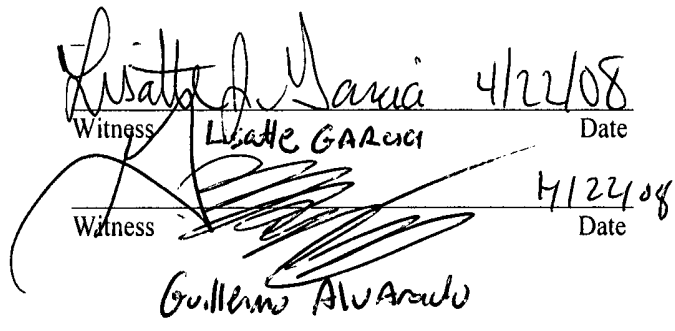 Lisatte J. Garcia 4/22/08
Witness Lisatte GARCIA Date
4/22/08
Witness Date
Guillermo Alvarado